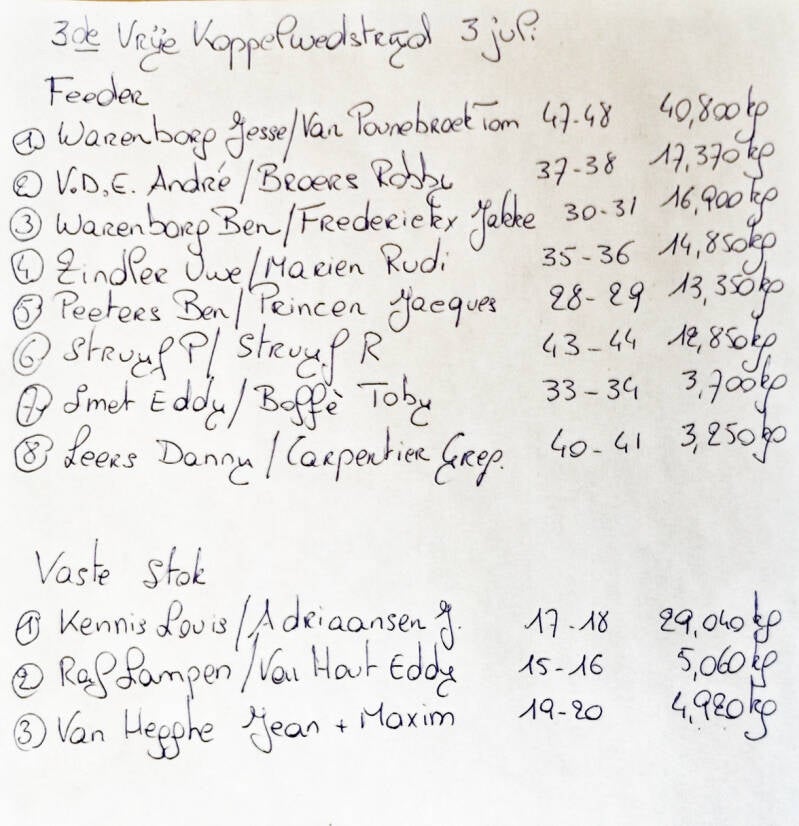 3de Vrije Koppelwedstrijd 3 juli
Feeder
① Warenborg Jesse/Van Pounebroek Tom 47-48 40,800kg
② V.D.E. André/Broers Robby 37-38 17,370kg
③ Warenborg Ben/Frederickx Jakke 30-31 16,900kg
④ Zindler Uwe/Marien Rudi 35-36 14,850kg
⑤ Peeters Ben/Princen Jacques 28-29 13,350kg
⑥ Struyf P/Struyf R 43-44 12,850kg
⑦ Smet Eddy/Boffè Toby 33-34 3,700kg
⑧ Leers Danny/Carpentier Greg. 40-41 3,250kg
Vaste Stok
① Kennis Louis/Adriaansen J. 17-18 29,040kg
② Raf Lampen/Van Hout Eddy 15-16 5,060kg
③ Van Hegghe Jean + Maxim 19-20 4,920kg